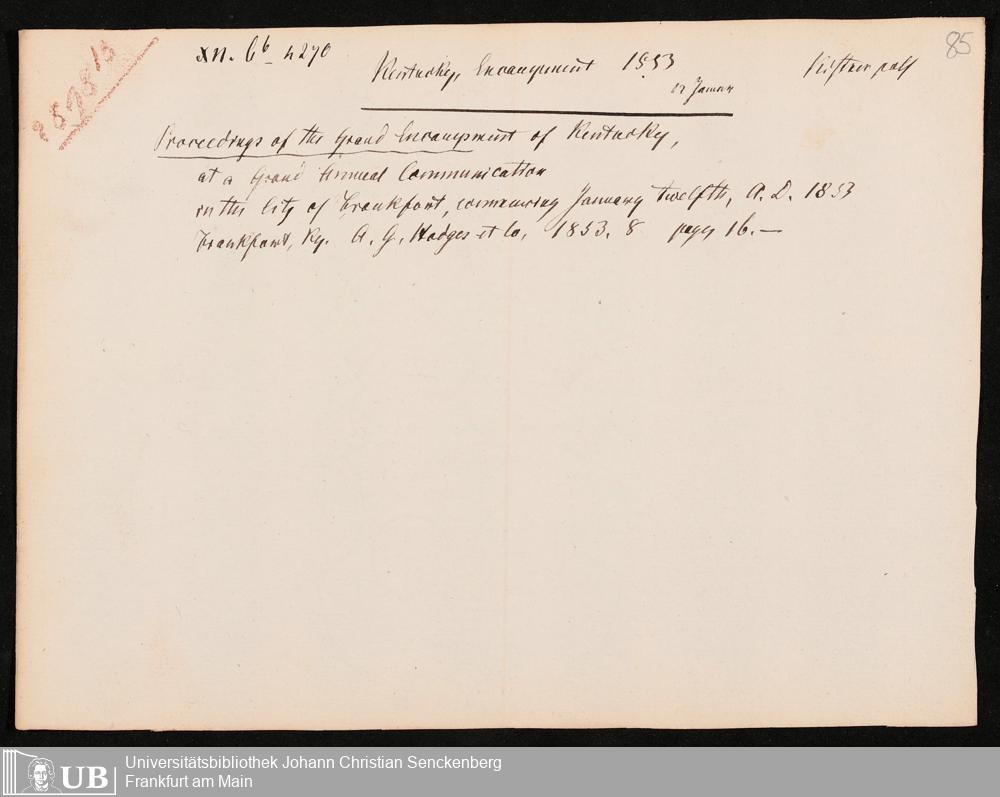 85
XII. 6b 4270
Kentucky, Encampment 1853
12 Januar
Proceedings of the Grand Encampment of Kentucky,
at a Grand Annual Communication
in the City of Frankfort, commencing January twelfth, A. D. 1853
Frankfort, Ky. A. G. Hodges et Co, 1853. 8 pages 16. —
UB Universitätsbibliothek Johann Christian Senckenberg
Frankfurt am Main